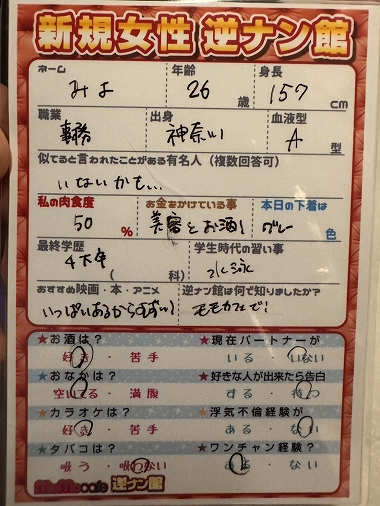 新規女性 逆ナン館
ネーム 年齢 身長
みよ 26 歳 157 cm
職業 出身 血液型
事務 神奈川 A 型
似てると言われたことがある有名人(複数回答可)
いないかも…
私の肉食度 お金をかけている事 本日の下着は
50 % 美容とお酒! グレー 色
最終学歴 学生時代の習い事
4大卒 ( 科) 水泳
おすすめ映画・本・アニメ 逆ナン館は何で知りましたか?
いっぱいあるから モモカフェで!
★お酒は? ★現在パートナーが
好き・苦手 いる・いない
★おなかは? ★好きな人が出来たら告白
空いてる・満腹 する・待つ
★カラオケは? ★浮気不倫経験が
好き・苦手 ある・ない
★タバコは? ★ワンチャン経験?
吸う・吸わない ある・ない
MoMo cafe 逆ナン館